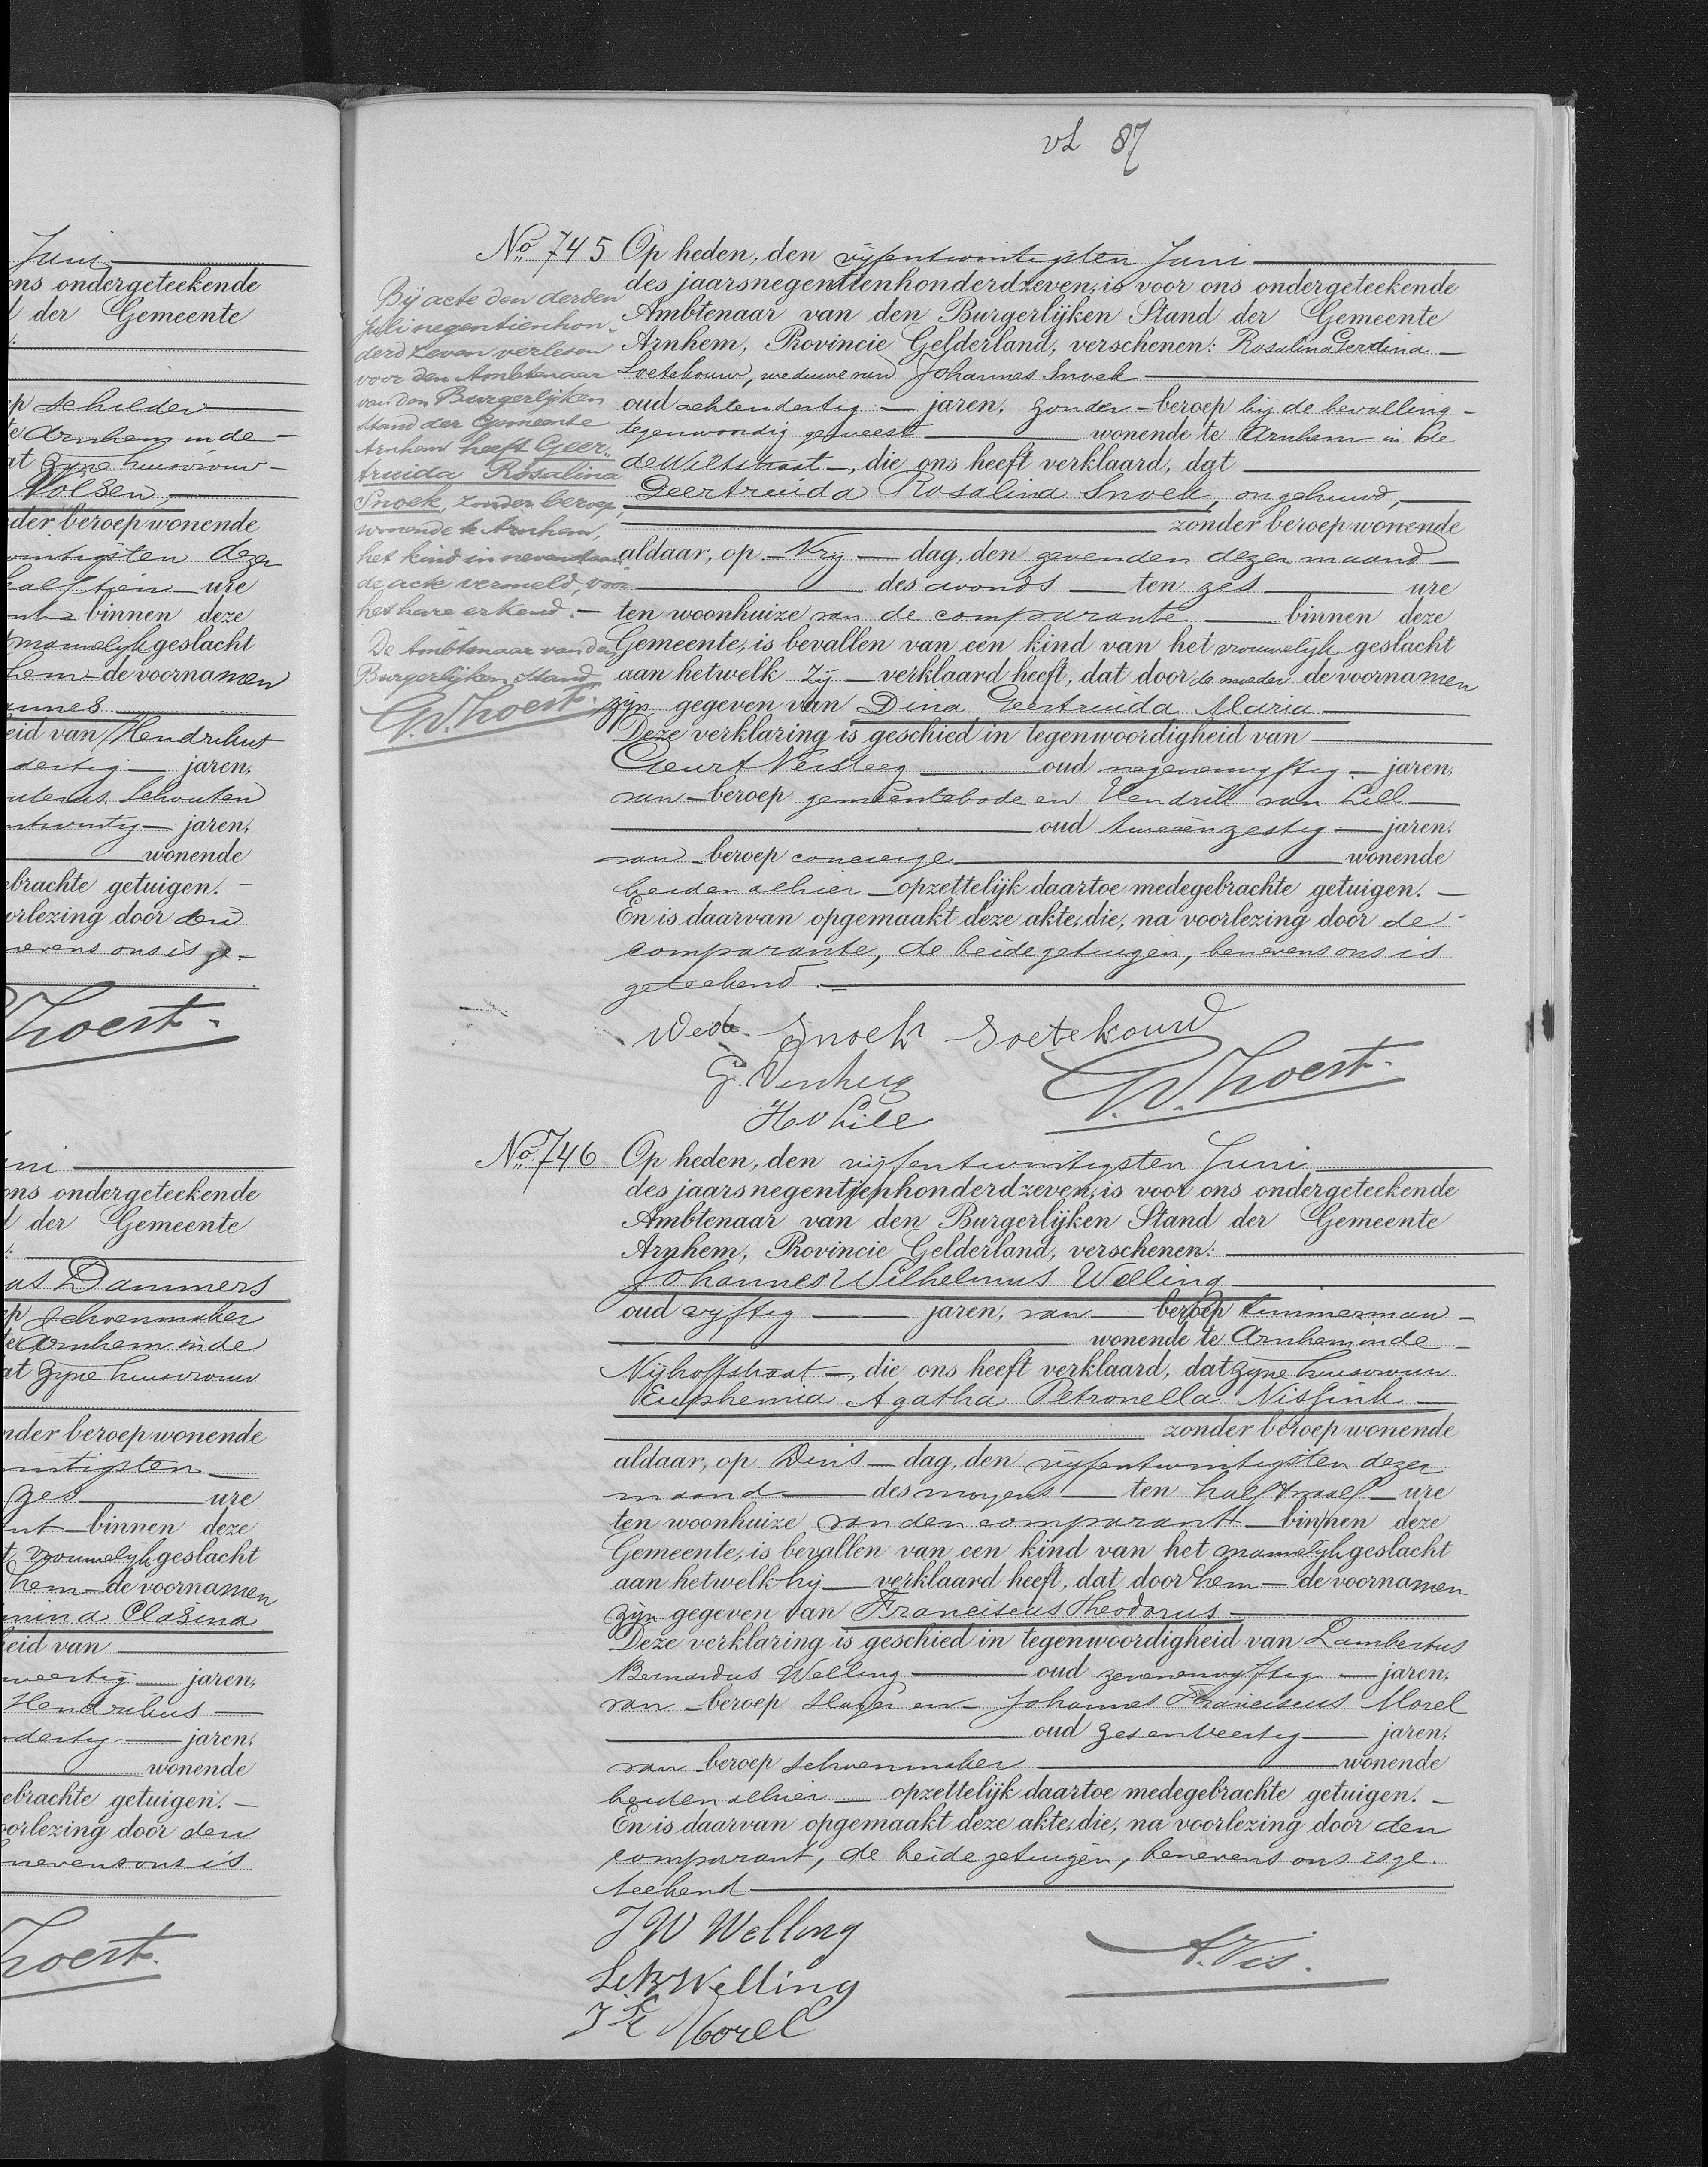 Juni
ons ondergeteekende
der Gemeente
schilder
te Arnhem in de
at zijne huisvrouw
Nolsen,
der beroep wonende
wintigsten dezer
half tien ure
binnen deze
mannelijk geslacht
hem de voornamen
annes
eid van Hendrikus
dertig jaren,
Schouten
ntwintig jaren,
wonende
ebrachte getuigen.
orlezing door den
nevens ons is ge-
Thoest
ni
ons ondergeteekende
der Gemeente
us Dammers
schoenmaker
te Arnhem in de
at zijne huisvrouw
nder beroep wonende
wintigsten
zes ure
nt binnen deze
t vrouwelijk geslacht
hem de voornamen
mina Clasina
heid van
jaren,
Hendrikus
dertig jaren,
wonende
ebrachte getuigen.
oorlezing door den
nevens ons is
hoest.
vL 87
No. 745 Op heden, den vijfentwintigsten Juni
des jaars negentienhonderd zeven, is voor ons ondergeteekende
Ambtenaar van den Burgerlijken Stand der Gemeente
Arnhem, Provincie Gelderland, verschenen: Rosalina Gerdina
Soetekouw, weduwe van Johannes Snoek
oud achtendertig jaren, zonder beroep bij de bevalling
tegenwoordig geweest wonende te Arnhem in de
de Wiltstraat, die ons heeft verklaard, dat
Geertruida Rosalina Snoek, ongehuwd,
zonder beroep wonende
aldaar, op Vry dag, den zevenden dezer maand
des avonds ten zes ure
ten woonhuize van de comparante binnen deze
Gemeente, is bevallen van een kind van het vrouwelijk geslacht
aan hetwelk zij verklaard heeft, dat door de moeder de voornamen
zijn gegeven van Dina Geertruida Maria
Deze verklaring is geschied in tegenwoordigheid van
Geurt Versteeg oud negenenvijftig jaren,
van beroep gemeentebode en Hendrik van Lill
oud tweeenzestig jaren,
van beroep concierge wonende
beiden alhier opzettelijk daartoe medegebrachte getuigen.
En is daarvan opgemaakt deze akte, die, na voorlezing door de
comparante, de beide getuigen, benevens ons is
geteekend.
Wede Snoek Soetekouw
G. Versteeg
H v Lill
G.W. Thoest.
Bij acte den derden
Juli negentienhon-
derd zeven verleden
voor den Ambtenaar
van den Burgerlijken
Stand der Gemeente
Arnhem heeft Geer-
truida Rosalina
Snoek, zonder beroep,
wonende te Arnhem,
het kind in nevenstaan-
de acte vermeld, voor
het hare erkend.
De Ambtenaar van den
Burgerlijken Stand
G.W. Thoest.
No. 746 Op heden, den vijfentwintigsten Juni
des jaars negentienhonderd zeven, is voor ons ondergeteekende
Ambtenaar van den Burgerlijken Stand der Gemeente
Arnhem, Provincie Gelderland, verschenen:
Johannes Wilhelmus Welling
oud vijftig jaren, van beroep timmerman
wonende te Arnhem in de
Nijhoffstraat, die ons heeft verklaard, dat zijne huisvrouw
Euphemia Agatha Petronella Nissink
zonder beroep wonende
aldaar, op Dins dag, den vijfentwintigsten dezer
maand des morgens ten half twaalf ure
ten woonhuize van den comparant binnen deze
Gemeente, is bevallen van een kind van het mannelijk geslacht
aan hetwelk hij verklaard heeft, dat door hem de voornamen
zijn gegeven van Franciscus Theodorus
Deze verklaring is geschied in tegenwoordigheid van Lambertus
Bernardus Welling oud zevenenvijftig jaren,
van beroep slager en Johannes Franciscus Morel
oud zesenveertig jaren,
van beroep schoenmaker wonende
beiden alhier opzettelijk daartoe medegebrachte getuigen.
En is daarvan opgemaakt deze akte, die, na voorlezing door den
comparant, de beide getuigen, benevens ons is ge-
teekend
J W Welling
L. B. Welling
J F Morel
A. Vis.